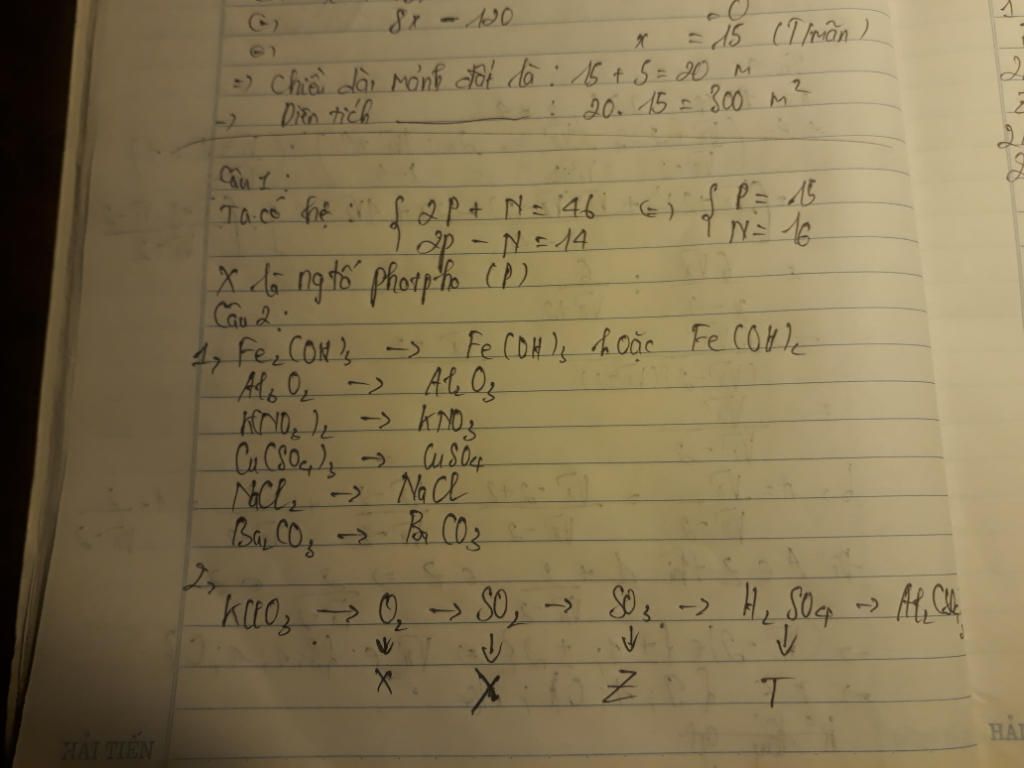 8x - 120 = 0
x = 15 (T/mãn)
=> Chiều dài mảnh đất là : 15 + 5 = 20 m
-> Diện tích ——— : 20. 15 = 300 m²
Câu 1 :
Ta có hệ : { 2P + N = 46 <=> { P = 15
2p - N = 14 N = 16
X là ng tố photpho (P)
Câu 2 :
1, Fe₂(OH)₃ -> Fe(OH)₃ hoặc Fe(OH)₂
Al₆O₂ -> Al₂O₃
K(NO₃)₂ -> KNO₃
Cu(SO₄)₃ -> CuSO₄
NaCl₂ -> NaCl
Ba₂CO₃ -> BaCO₃
2,
KClO₃ -> O₂ -> SO₂ -> SO₃ -> H₂SO₄ -> Al₂(SO₄)₃
↓ ↓ ↓ ↓
X X Z T
HẢI TIẾN